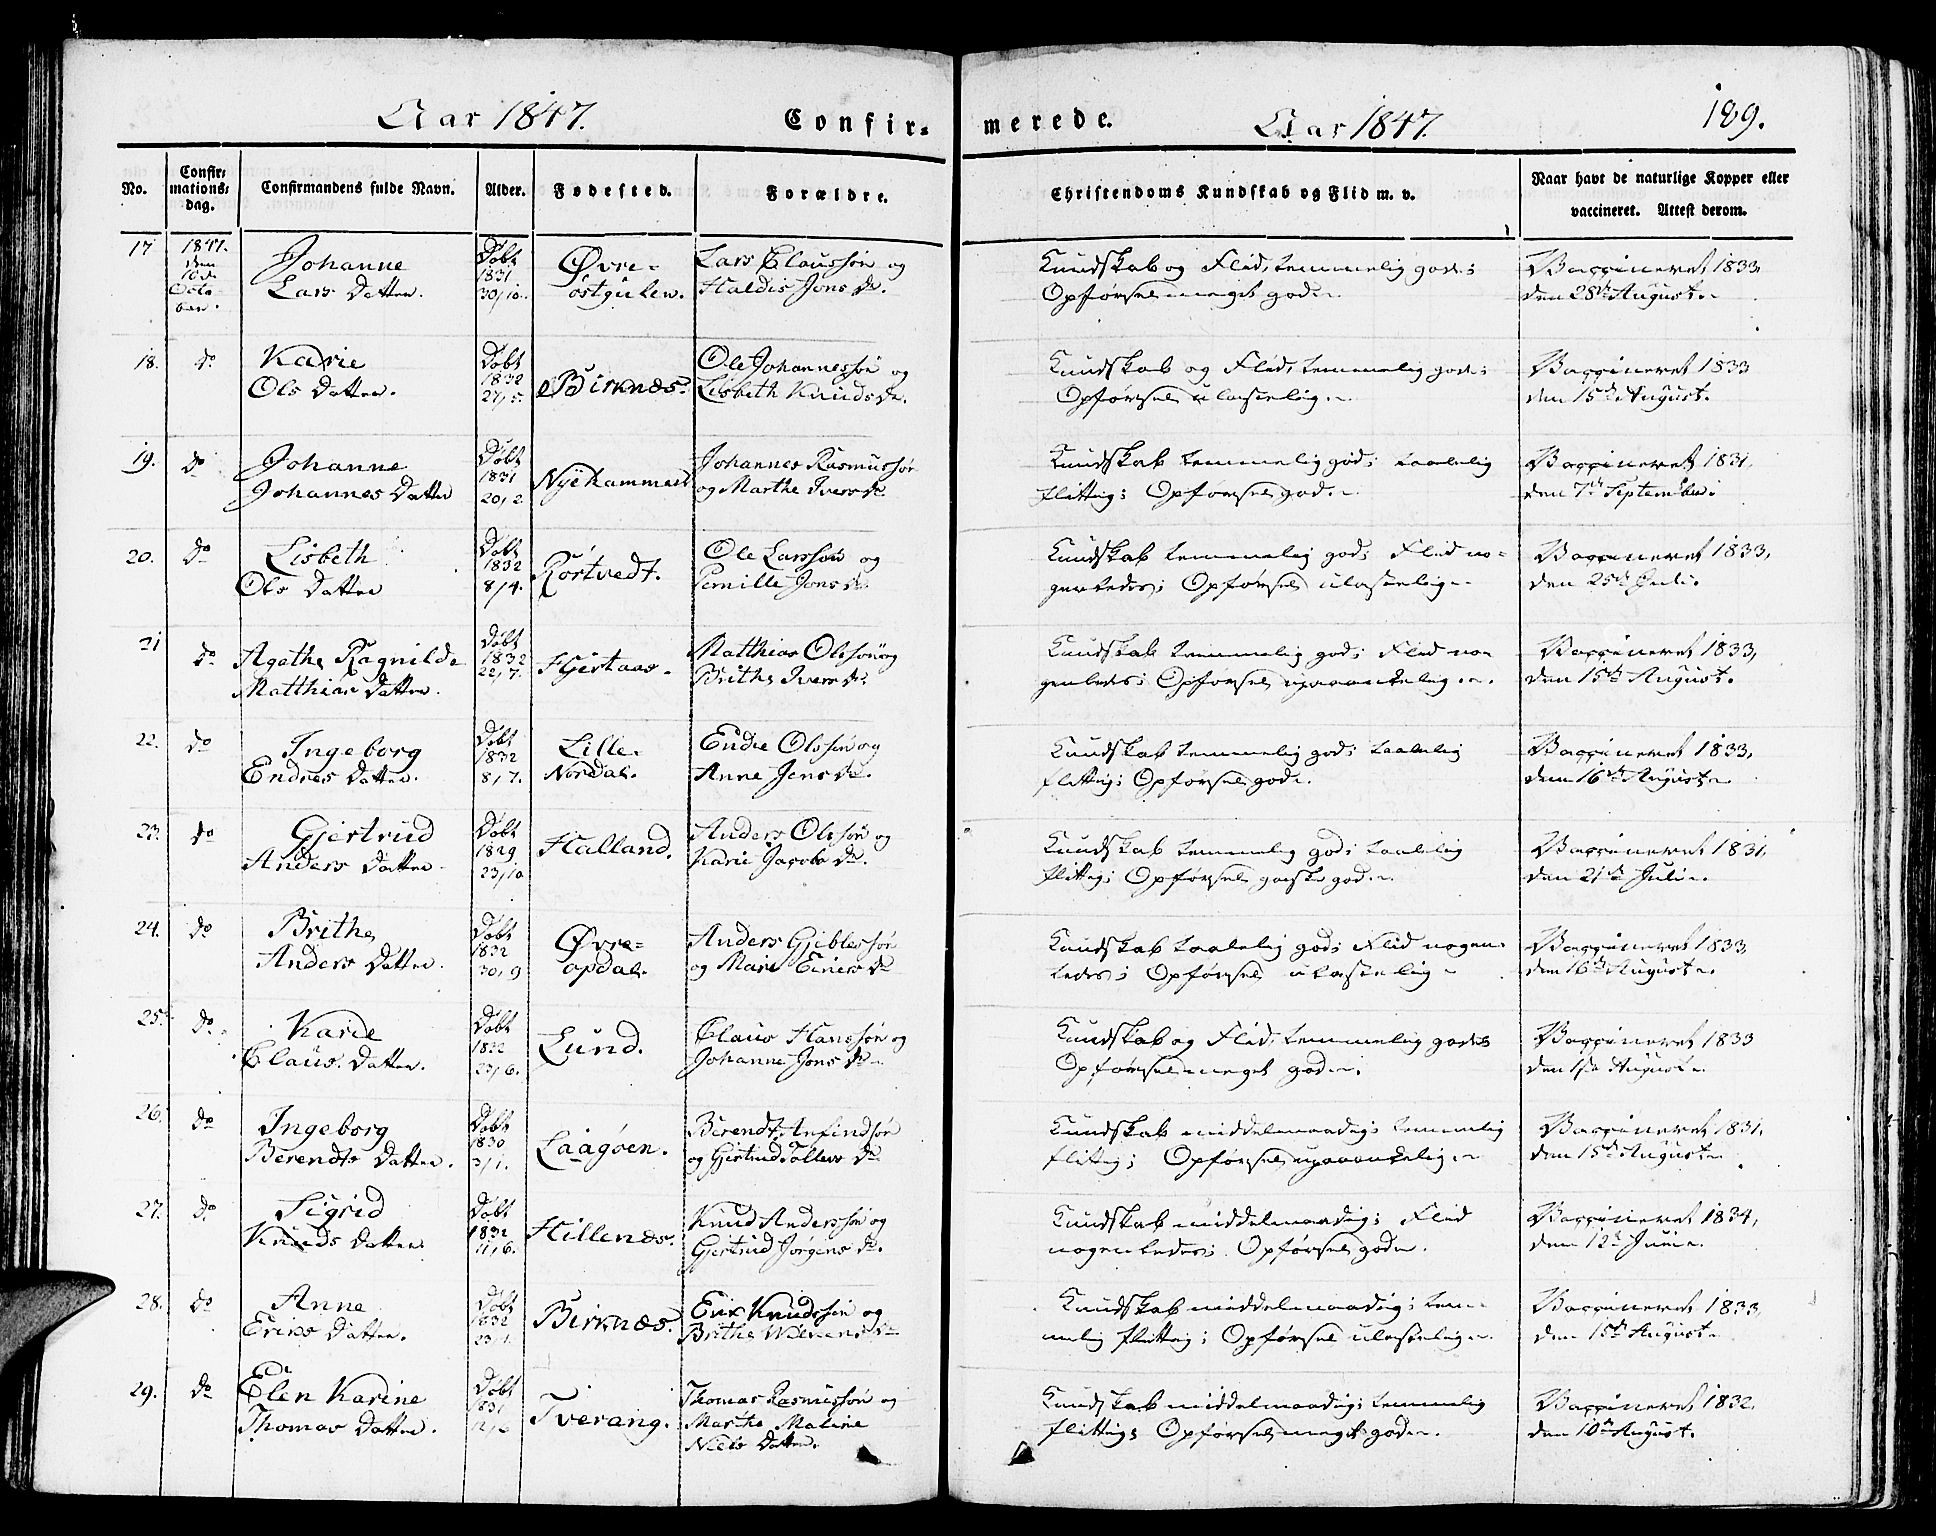 Aar 1847. Confir-
merede. Aar 1847. 189.
No. Confir-mations-dag. Confirmandens fulde Navn. Alder. Fødested. Forældre. Christendoms Kundskab og Flid m. v. Naar havt de naturlige Kopper eller vaccineret. Attest derom.
17 1847. Johanne Døbt Øvre- Lars Claussøn og Kundskab og Flid, temmelig gode; Vaccineret 1833,
den 10de October. Lars Datter. 1831 30/10. ostgulen. Haldis Jons Dr. Opførsel meget god. den 28de August.
18. do Karie Døbt Birknæs. Ole Johannessøn og Kundskab og Flid, temmelig gode; Vaccineret 1833
Ols Datter. 1832 27/5. Lisbeth Knuds Dr. Opførsel ulastelig. den 15de August.
19. do Johanne Døbt Nyehammer Johannes Rasmussøn Kundskab temmelig god; taalelig Vaccineret 1831,
Johannes Datter 1831 20/2. og Marthe Ivers Dr. flittig; Opførsel god. den 7de September.
20. do Lisbeth Døbt Rørtvedt. Ole Larssøn og Kundskab temmelig god; Flid no- Vaccineret 1833,
Ols Datter 1832 8/4. Pernille Jons Dr. genledes; Opførsel ulastelig. den 25de Juli.
21 do Agathe Ragnilde Døbt Hjertaas. Matthias Olssøn og Kundskab temmelig god; Flid no- Vaccineret 1833,
Matthias Datter. 1832 22/7. Brithe Ivers Dr. genledes; Opførsel upaaankelig. den 15de August.
22. do Ingeborg Døbt Lille- Endre Olssøn og Kundskab temmelig god; taalelig Vaccineret 1833,
Endres Datter. 1832 8/7. Nordal. Anne Jens Dr. flittig; Opførsel god. den 16de August.
23. do Gjertrud Døbt Halland. Anders Olssøn og Kundskab temmelig god; taalelig Vaccineret 1831,
Anders Datter. 1829 23/10 Karie Jacobs Dr. flittig; Opførsel ganske god. den 21de Juli.
24. do Brithe Døbt Øvre- Anders Gjiblessøn Kundskab taalelig god; Flid nogen- Vaccineret 1833,
Anders Datter. 1832 30/9 opdal. og Marie Einers Dr ledes; Opførsel ulastelig. den 16de August.
25. do. Karie Døbt Lund. Claus Hanssøn og Kundskab og Flid, temmelig gode; Vaccineret 1833
Claus Datter. 1832 23/6. Johanne Jons Dr. Opførsel meget god. den August.
26. do Ingeborg Døbt Laagøen. Berendt Anfindsøn Kundskab middelmaadig; temmelig Vaccineret 1831,
Berendts Datter. 1830 3/1. og Gjertrud Tollevs Dr. flittig; Opførsel upaaankelig. den 15de August.
27. do. Sigrid Døbt Hillenæs. Knud Anderssøn og Kundskab middelmaadig; Flid Vaccineret 1834,
Knuds Datter. 1832 11/6. Gjertrud Jørgens Dr. nogenledes; Opførsel god. den 12te Juni.
28. do Anne Døbt Birknæs. Erik Knudssøn og Kundskab middelmaadig; tem- Vaccineret 1833,
Eriks Datter. 1832 23/1. Brithe Dr. melig flittig; Opførsel ulastelig. den 15de August.
29. do Elen Karine Døbt Tverang. Thomas Rasmussøn og Kundskab middelmaadig; temmelig Vaccineret 1832.
Thomas Datter. 1831 12/6 Marthe Maline flittig; Opførsel meget god. den 10de August.
Niels Datter.